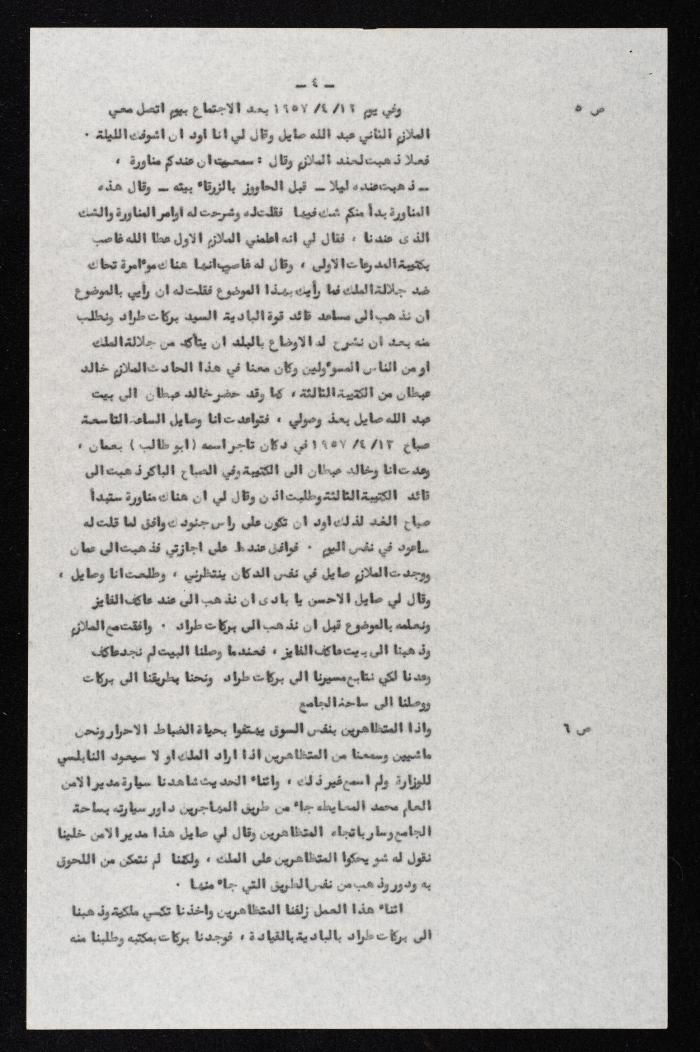 ــ ٤ ــ
وفي يوم ١٢ /٤ /١٩٥٧ بعد الاجتماع بيوم اتصل معي ص ٥
الملازم الثاني عبد الله صايل وقال لي انا اود ان اشوفك الليلة ٠
فعلا ذهبت لعند الملازم وقال : سمعت ان عندكم مناورة ،
ــ ذهبت عنده ليلا ــ قبل الحاووز بالزرقاء بيته ــ وقال هذه
المناورة بدأ منكم شك فيها فقلت له وشرحت له اوامر المناورة والشك
الذى عندنا ، فقال لي انه اعلمني الملازم الاول عطا الله غاصب
بكتيبة المدرعات الاولى ، وقال له غاصب انها هناك موءامرة تحاك
ضد جلالة الملك فما رأيك بهذا الموضوع فقلت له ان رأيي بالموضوع
ان نذهب الى مساعد قائد قوة البادية السيد بركات طراد ونطلب
منه بعد ان نشرح له الاوضاع بالبلد ان يتأكد من جلالة الملك
او من الناس المسوءولين وكان معنا في هذا الحادث الملازم خالد
عبطان من الكتيبة الثالثة ، كما وقد حضر خالد عبطان الى بيت
عبد الله صايل بعد وصولي ، فتواعدت انا وصايل الساعة التاسعة
صباح ١٣ /٤ /١٩٥٧ في دكان تاجر اسمه ( ابو طالب ) بعمان ،
وعدت انا وخالد عبطان الى الكتيبة وفي الصباح الباكر ذهبت الى
قائد الكتيبة الثالثة وطلبت اذن وقال لي ان هناك مناورة ستبدأ
صباح الغد لذلك اود ان تكون على راس جنودك وافق لما قلت له
ساعود في نفس اليوم ٠ فوافق عندها على اجازتي فذهبت الى عمان
ووجدت الملازم صايل في نفس الدكان ينتظرني ، وطلعت انا وصايل ،
وقال لي صايل الاحسن يا بادى ان نذهب الى عند عاكف الفايز
ونعلمه بالموضوع قبل ان نذهب الى بركات طراد ٠ وافقت مع الملازم
وذهبنا الى بيت عاكف الفايز ، فعندما وصلنا البيت لم نجد عاكف
وعدنا لكي نتابع مسيرنا الى بركات طراد ونحنا بطريقنا الى بركات
ووصلنا الى ساحة الجامع
واذا المتظاهرين بنفس السوق يهتفوا بحياة الضباط الاحرار ونحن ص ٦
ماشيين وسمعنا من المتظاهرين اذا اراد الملك او لا سيعود النابلسي
للوزارة ولم اسمع غير ذلك ، واثناء الحديث شاهدنا سيارة مدير الامن
العام محمد المعايطه جاء من طريق المهاجرين داور سيارته بساحة
الجامع وسار باتجاه المتظاهرين وقال لي صايل هذا مدير الامن خلينا
نقول له شو يحكوا المتظاهرين على الملك ، ولكننا لم نتمكن من اللحوق
به ودور وذهب من نفس الطريق التي جاء منها ٠
اثناء هذا العمل زلفنا المتظاهرين واخذنا تكسي ملكية وذهبنا
الى بركات طراد بالبادية بالقيادة ، فوجدنا بركات بمكتبه وطلبنا منه